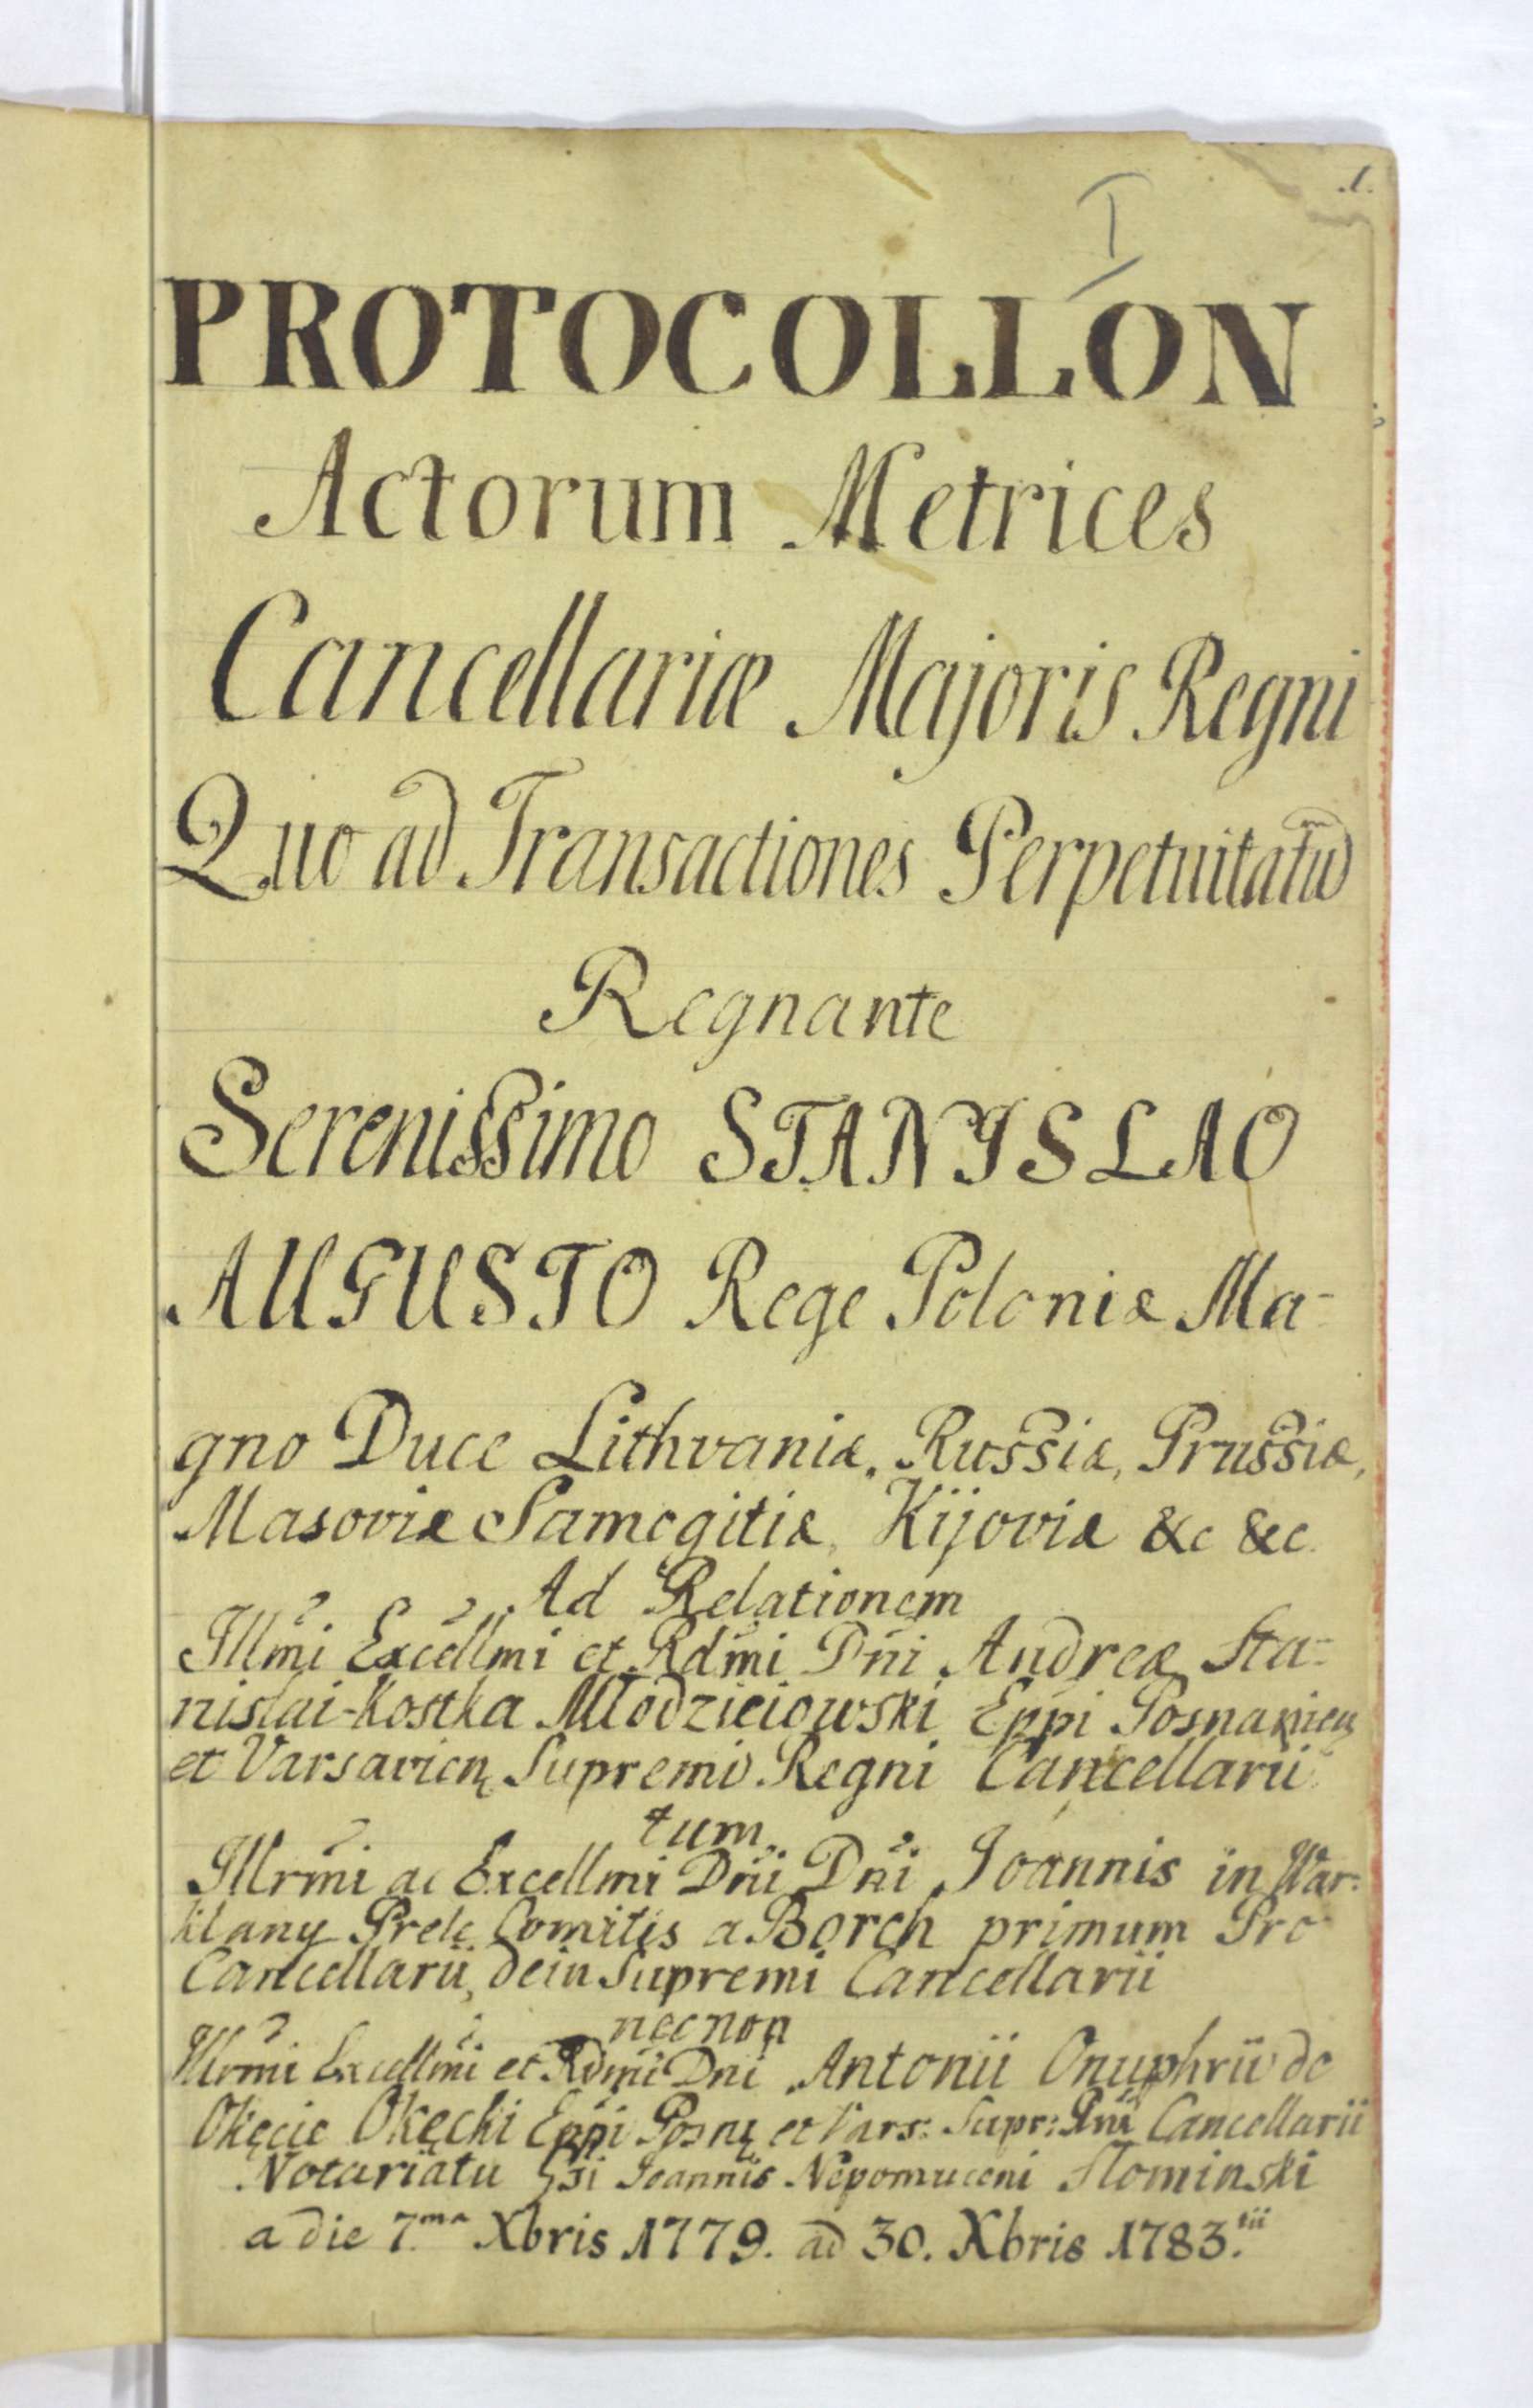 .1.
I
PROTOCOLLON
Actorum Metrices
Cancellariæ Majoris Regni
Quo ad Transactiones Perpetuitatū
Regnante
Serenissimo STANISLAO
AUGUSTO Rege Poloniæ Ma-
gno Duce Lithvaniæ, Russiæ, Prussiæ,
Masoviæ Samogitiæ, Kijoviæ &c &c.
Ad Relationem
Illmi Excellmi et Rdmi Dni Andreæ Sta-
nislai-Kostka Młodzieiowski Eppi Posnanien
et Varsavien Supremi Regni Cancellarii
tum
Illrmi ac Excellmi Dni Dni Joannis in War-
klany Prele Comitis a Borch primum Pro
Cancellarii, dein Supremi Cancellarii
necnon
Illrmi Excellmi et Rdmi Dni Antonii Onuphrii de
Okęcie Okęcki Eppi Posn et Vars: Supr: Rni Cancellarii
Notariatu Gsi Joannis Nepomuceni Słominski
a die 7.ma Xbris 1779. ad 30. Xbris 1783.tii